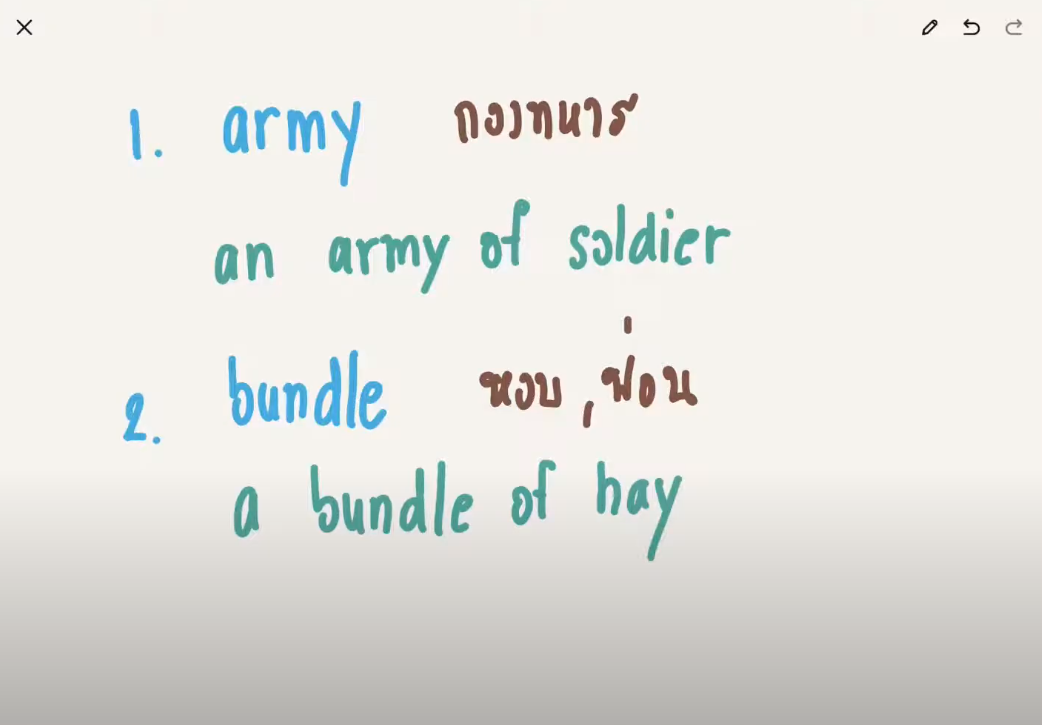 1. army กองทหาร
an army of soldier
2. bundle หอบ, ฟ่อน
a bundle of hay